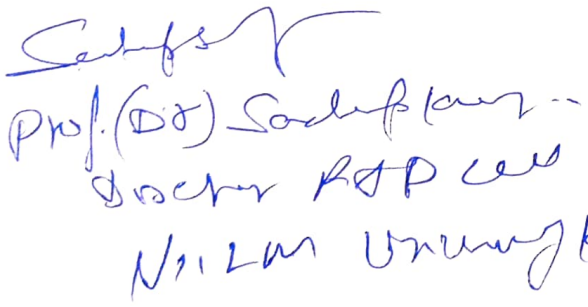 Prof. (Dr) Sandeep Kumar
Director R&D Cell
NIILM University